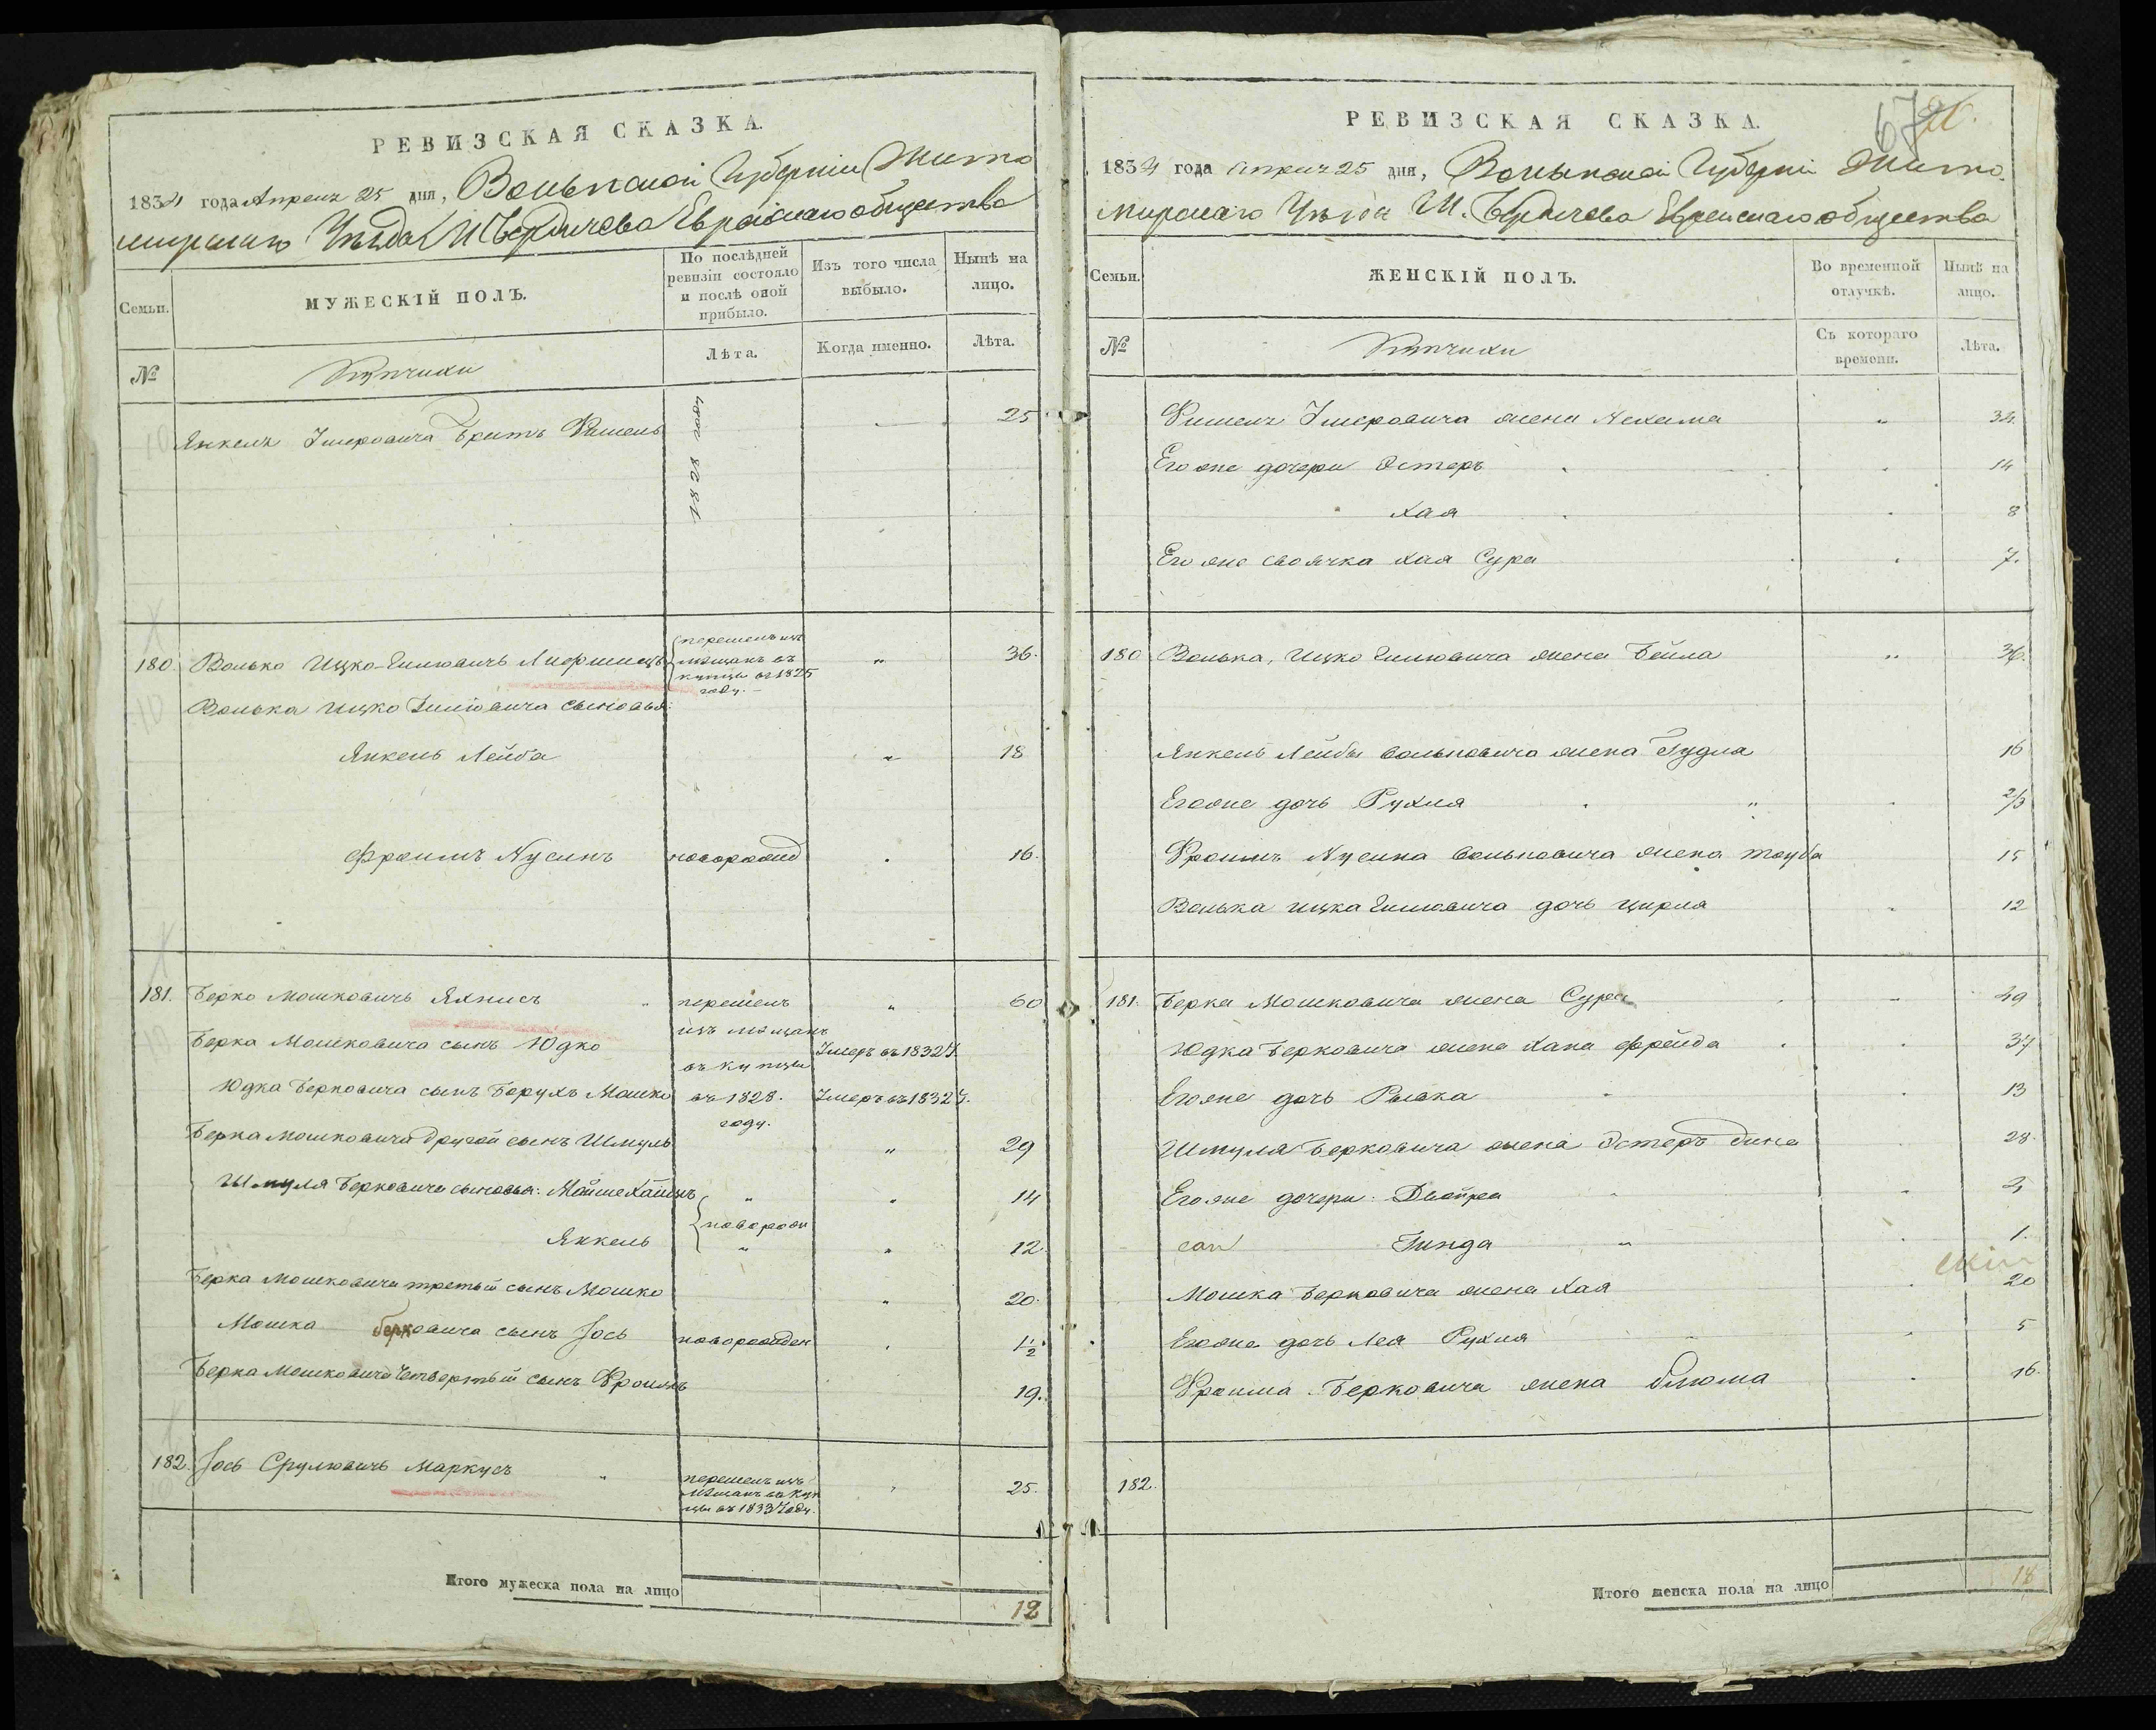 РЕВИЗСКАЯ СКАЗКА.
1834 года Апреля 25 дня, Волынской Губернии Жито
мирскаго Уѣзда М. Бердичева Еврейскаго общества
Семьи.
МУЖЕСКІЙ ПОЛЪ.
По послѣдней ревизіи состояло и послѣ оной прибыло.
Изъ того числа выбыло.
Нынѣ на лицо.
№
Купчики
Лѣта.
Когда именно.
Лѣта.
10
Янкеля Умеровича братъ Фишель
1828 году
25
180. Волько Ицко-Зиловичъ
перешелъ изъ
мѣщанъ въ
купцы въ 1825
году.
" 36.
10
Волька Ицко Зиловича сыновья:
Янкель Лейба " 18
Фроимъ Нусинъ новорожд 16.
181. Берко Мошковичъ Яхнисъ " перешелъ " 60
изъ мѣщанъ
Берка Мошковича сынъ Юдко въ купцы Умеръ въ 1832 г.
Юдка Берковича сынъ Борухъ Мошко въ 1828. Умеръ въ 1832 г.
году.
Берка Мошковича другой сынъ Шмуль " 29
Шмуля Берковича сыновья: Мойше Хаимъ " " 14
новорожд
Янкель " " 12
Берка Мошковича третьій сынъ Мошко " 20.
Мошка берковича сынъ Іось новорожден 1½
Берка Мошковича Четвертый сынъ Фроимъ 19.
182. Іось Срулювичъ Маркусъ "
перешелъ изъ
мѣщанъ въ куп
цы въ 1833 году.
25.
Итого мужеска пола на лицо
12
67
РЕВИЗСКАЯ СКАЗКА.
1834 года Апреля 25 дня, Волынской Губерніи Жито
мирскаго Уѣзда М. Бердичева Еврейскаго общества
Семьи.
ЖЕНСКІЙ ПОЛЪ.
Во временной отлучкѣ.
Нынѣ на лицо.
№
Купчихи
Съ котораго времени.
Лѣта.
Фишеля Умеровича жена Нехама " 34.
Его же дочери Эстеръ 14
Хая 8
Его же своячка Хая Сура 7.
180 Волька, Ицко Зиловича жена Бейла " 36.
Янкель Лейбы Вольковича жена Гудля 16
Его же дочь Рухля " 2/3
Фроимъ Нусина Вольковича жена Тауба 15
Волька Ицка Зиловича дочь Цирля 12
181. Берка Мошковича жена Сура " 49
Юдка Берковича жена Хана Фрейда 37
Его же дочь Рывка 13
Шмуля Берковича жена Эстеръ Дина 28.
Его же дочери: Двойра 3
Гинда " 1.
Мошка Берковича жена Хая 20
Его же дочь Лея Рухля 5
Фроима Берковича жена Блюма 16.
182.
Итого женска пола на лицо
18